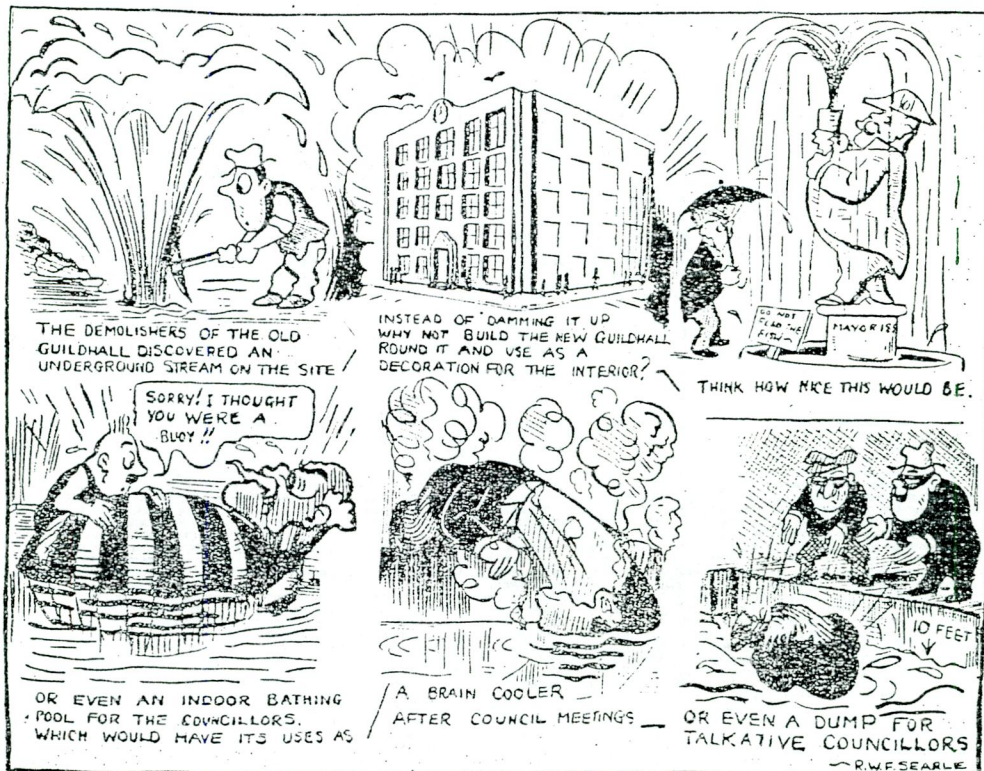 THE DEMOLISHERS OF THE OLD
GUILDHALL DISCOVERED AN
UNDERGROUND STREAM ON THE SITE
INSTEAD OF DAMMING IT UP
WHY NOT BUILD THE NEW GUILDHALL
ROUND IT AND USE AS A
DECORATION FOR THE INTERIOR?
DO NOT
FEED THE
FISH
MAYOR 188
THINK HOW NICE THIS WOULD BE.
SORRY! I THOUGHT
YOU WERE A
BUOY!!
OR EVEN AN INDOOR BATHING
POOL FOR THE COUNCILLORS.
WHICH WOULD HAVE ITS USES AS
A BRAIN COOLER
AFTER COUNCIL MEETINGS
10 FEET
OR EVEN A DUMP FOR
TALKATIVE COUNCILLORS
~R.W.F. SEARLE